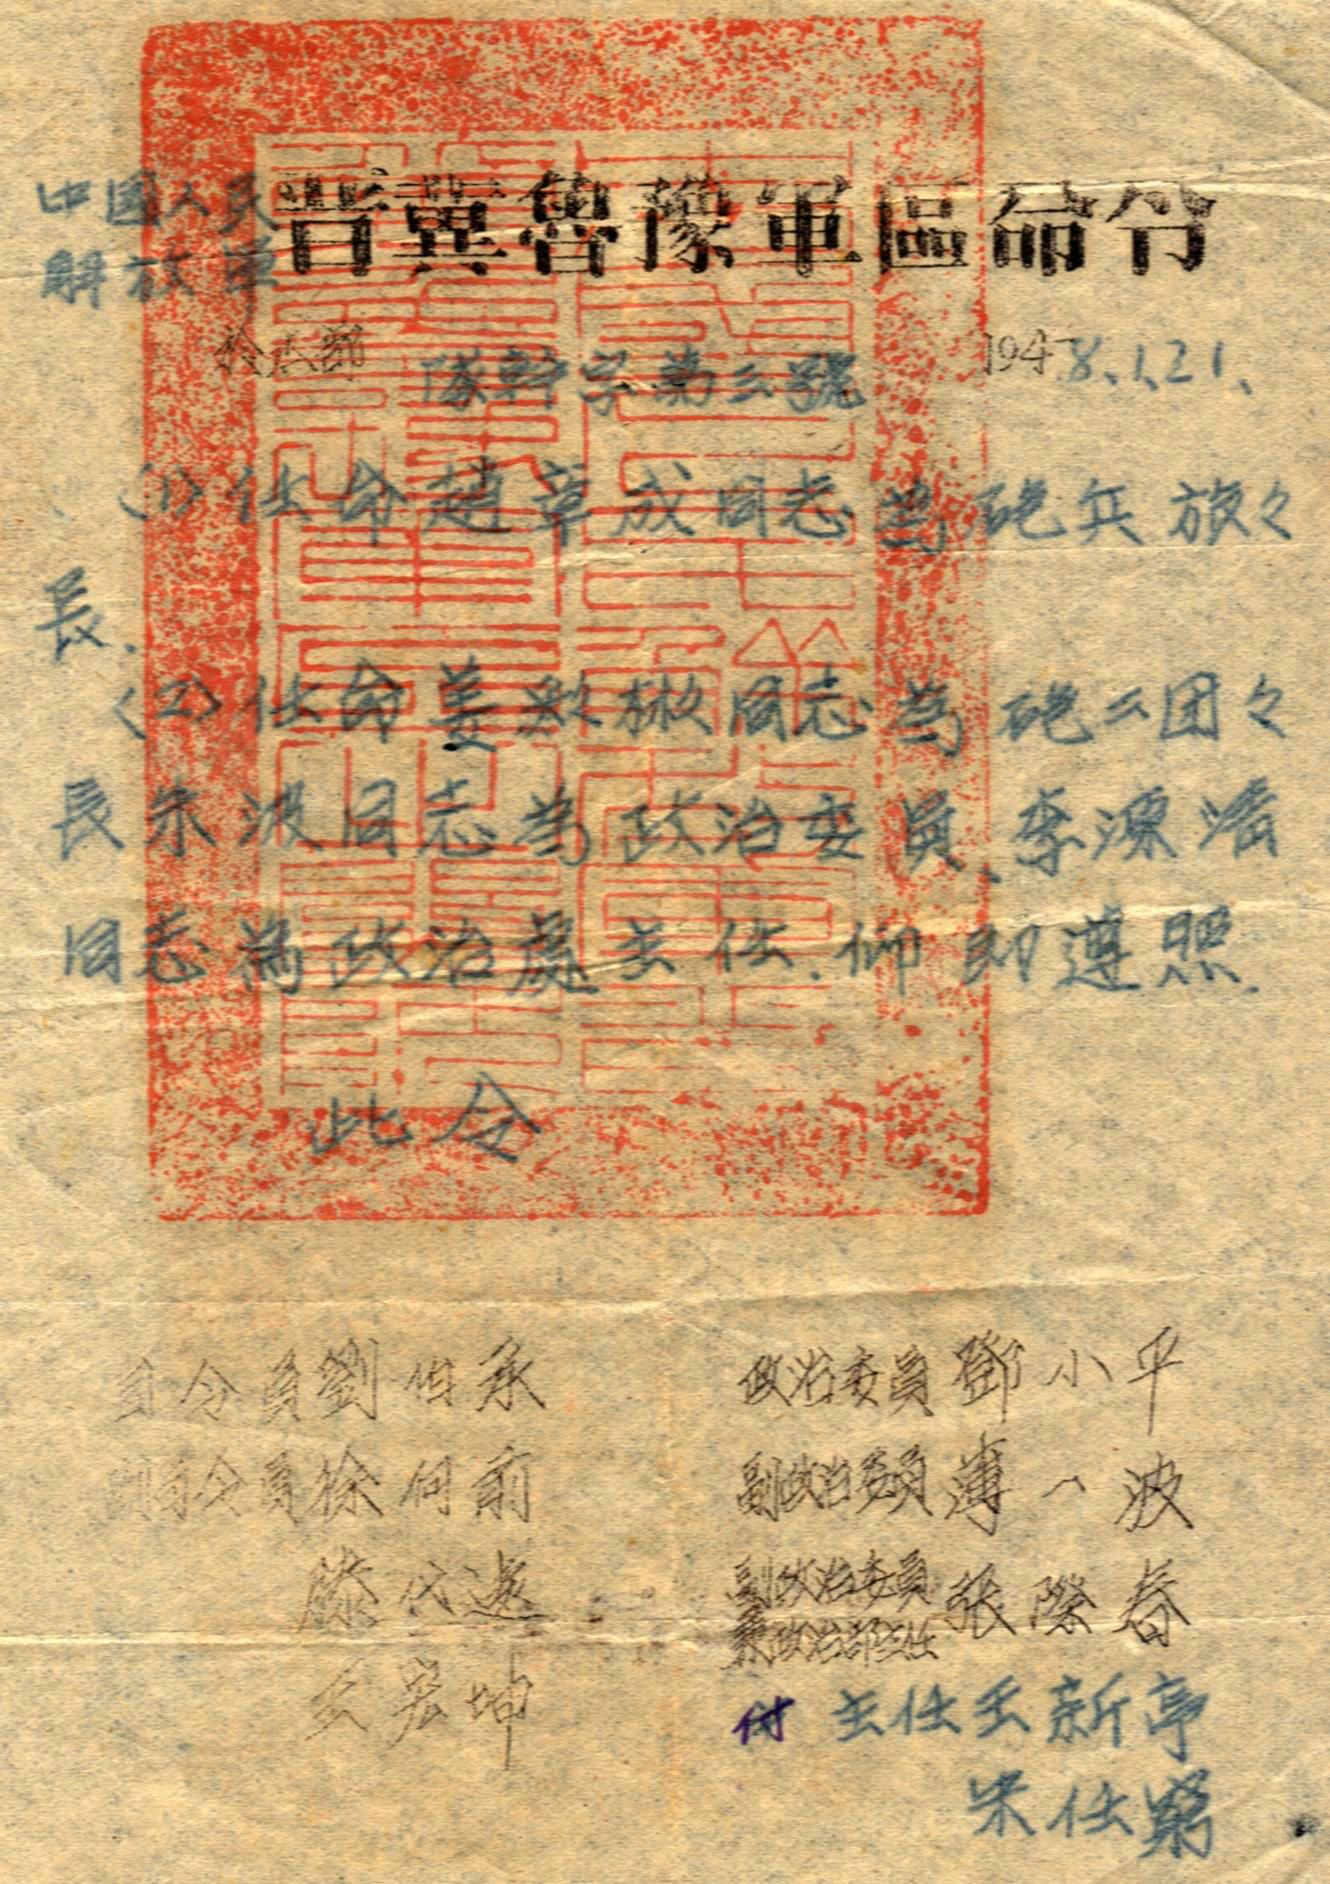 中国人民
解放軍
晋冀魯豫軍區命令
1948.1.21.
幹字第三號
(1)任命趙章成同志為砲兵旅々
長.
(2)任命姜 楸同志為砲二团々
長朱波同志為政治委員.李源浩
同志為政治處主任.仰即遵照.
此令
司令員劉伯承
副司令員徐向前
滕代遠
王宏坤
政治委員鄧小平
副政治委員薄一波
副政治委員
兼政治部主任
張際春
付主任王新亭
宋任窮